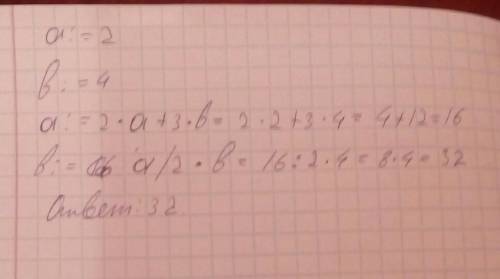 a := 2
b := 4
a := 2 · a + 3 · b = 2 · 2 + 3 · 4 = 4 + 12 = 16
b := a / 2 · b = 16 : 2 · 4 = 8 · 4 = 32
Ответ: 32.